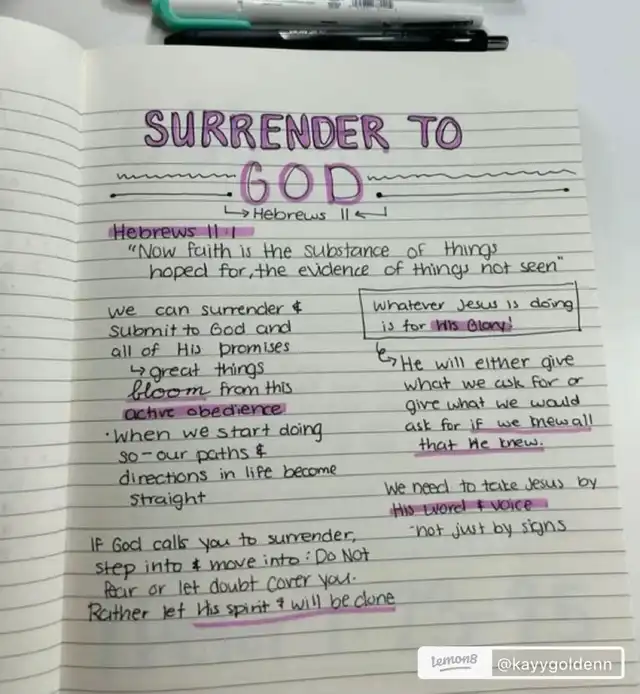 SURRENDER TO
GOD
↳Hebrews 11↲
Hebrews 11:1
"Now faith is the substance of things
hoped for, the evidence of things not seen"
we can surrender &
submit to God and
all of His promises
↳great things
bloom from this
active obedience
•When we start doing
so-our paths &
directions in life become
straight
whatever Jesus is doing
is for His Glory!
↳He will either give
what we ask for or
give what we would
ask for if we knew all
that He knew.
We need to take Jesus by
His word & voice
-not just by signs
If God calls you to surrender,
step into & move into: Do Not
fear or let doubt cover you.
Rather let His spirit & will be done
lemon8 @kayygoldenn